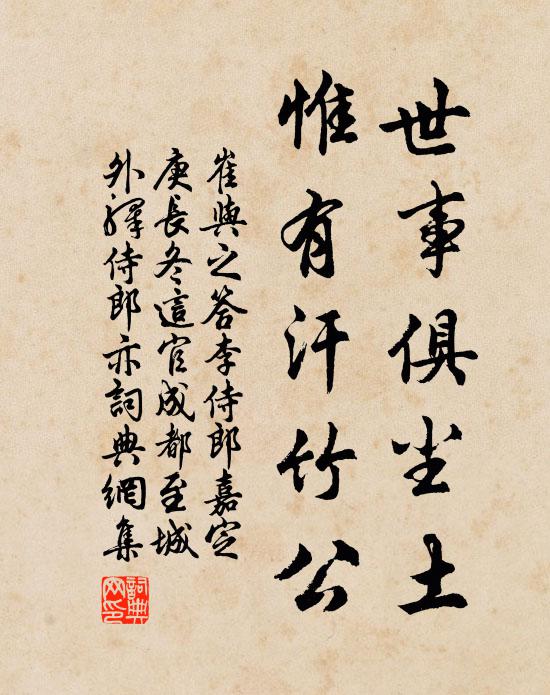 世事俱尘土
惟有汗竹公
崔與之答李侍郎嘉定
庚長冬這官成都至城
外驛侍郎亦詞典網集
詞典網印